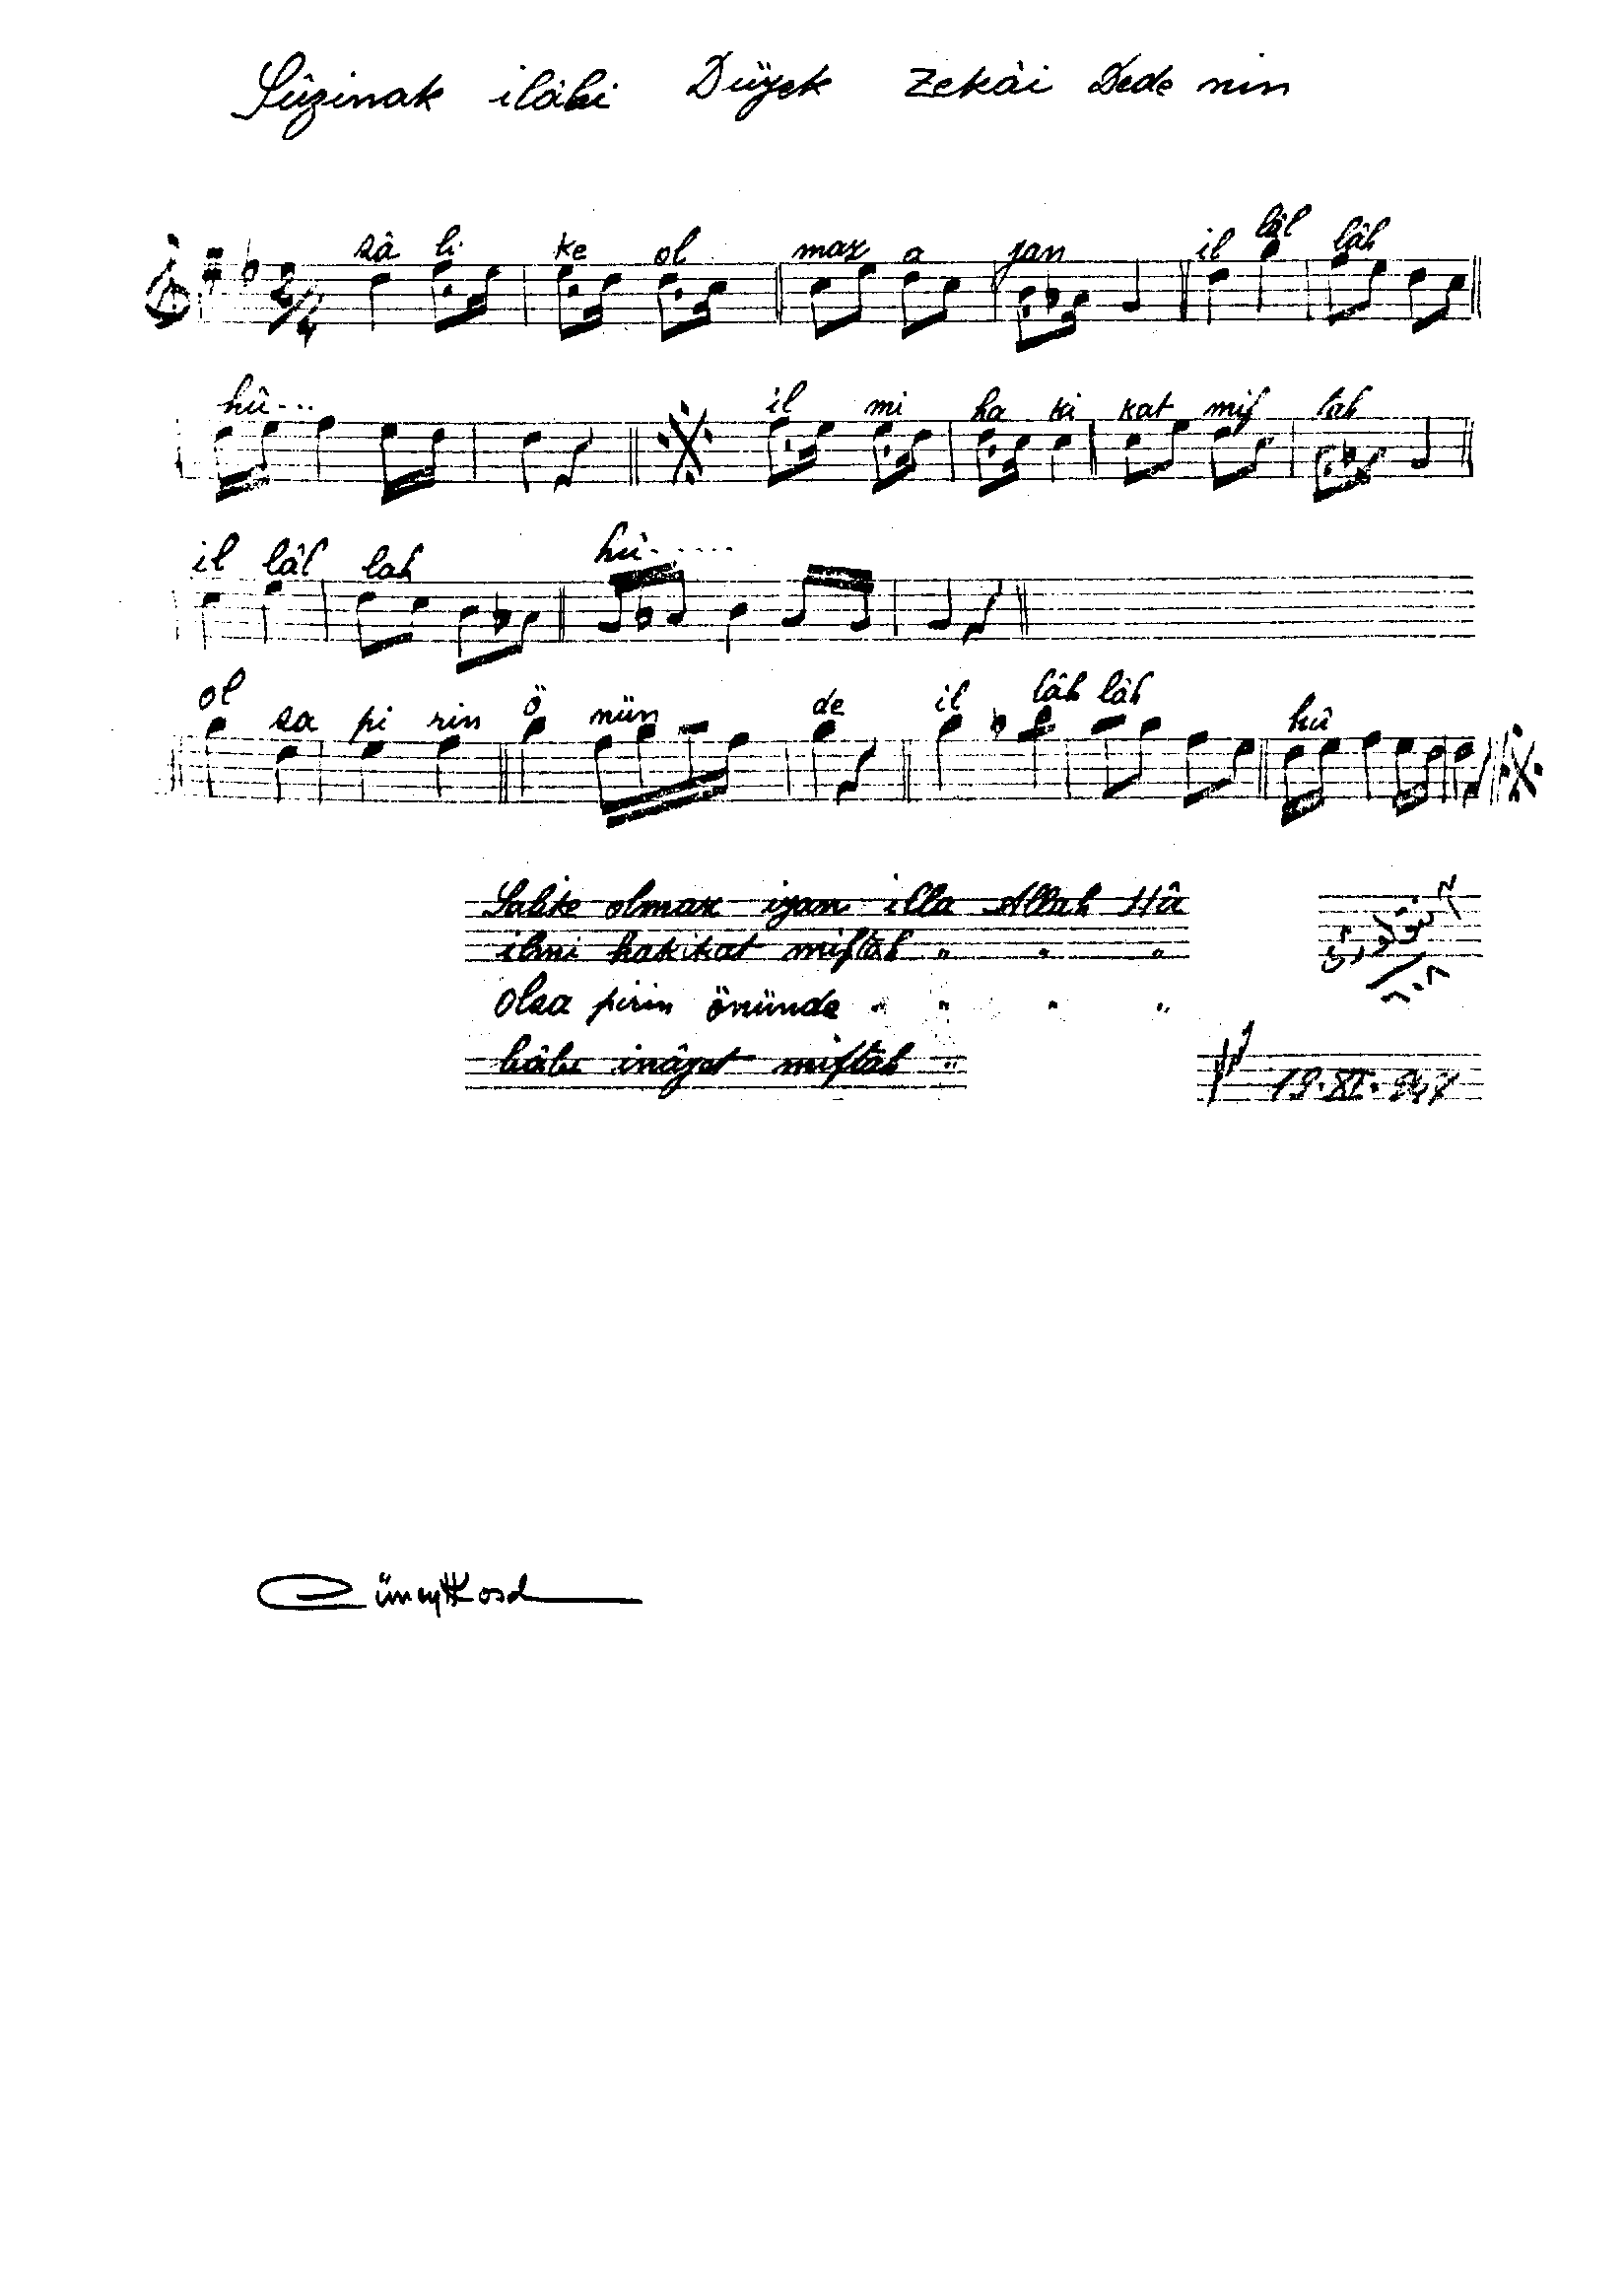 Sûzinak ilâhi Düyek Zekâi Dede nin
2/4 sâ li ke ol maz a yan il lâl lâh
hû... il mi ha ki kat mif tah
il lâl lah hû.....
ol sa pi rin ö nün de il lâh lâh hû
Salike olmaz iyan illa Allah Hû
ilmi hakikat miftâh " " "
olsa pirin önünde " " " "
bâbı inâyet miftâh "
19.XI.947
Cüneyt Kosal